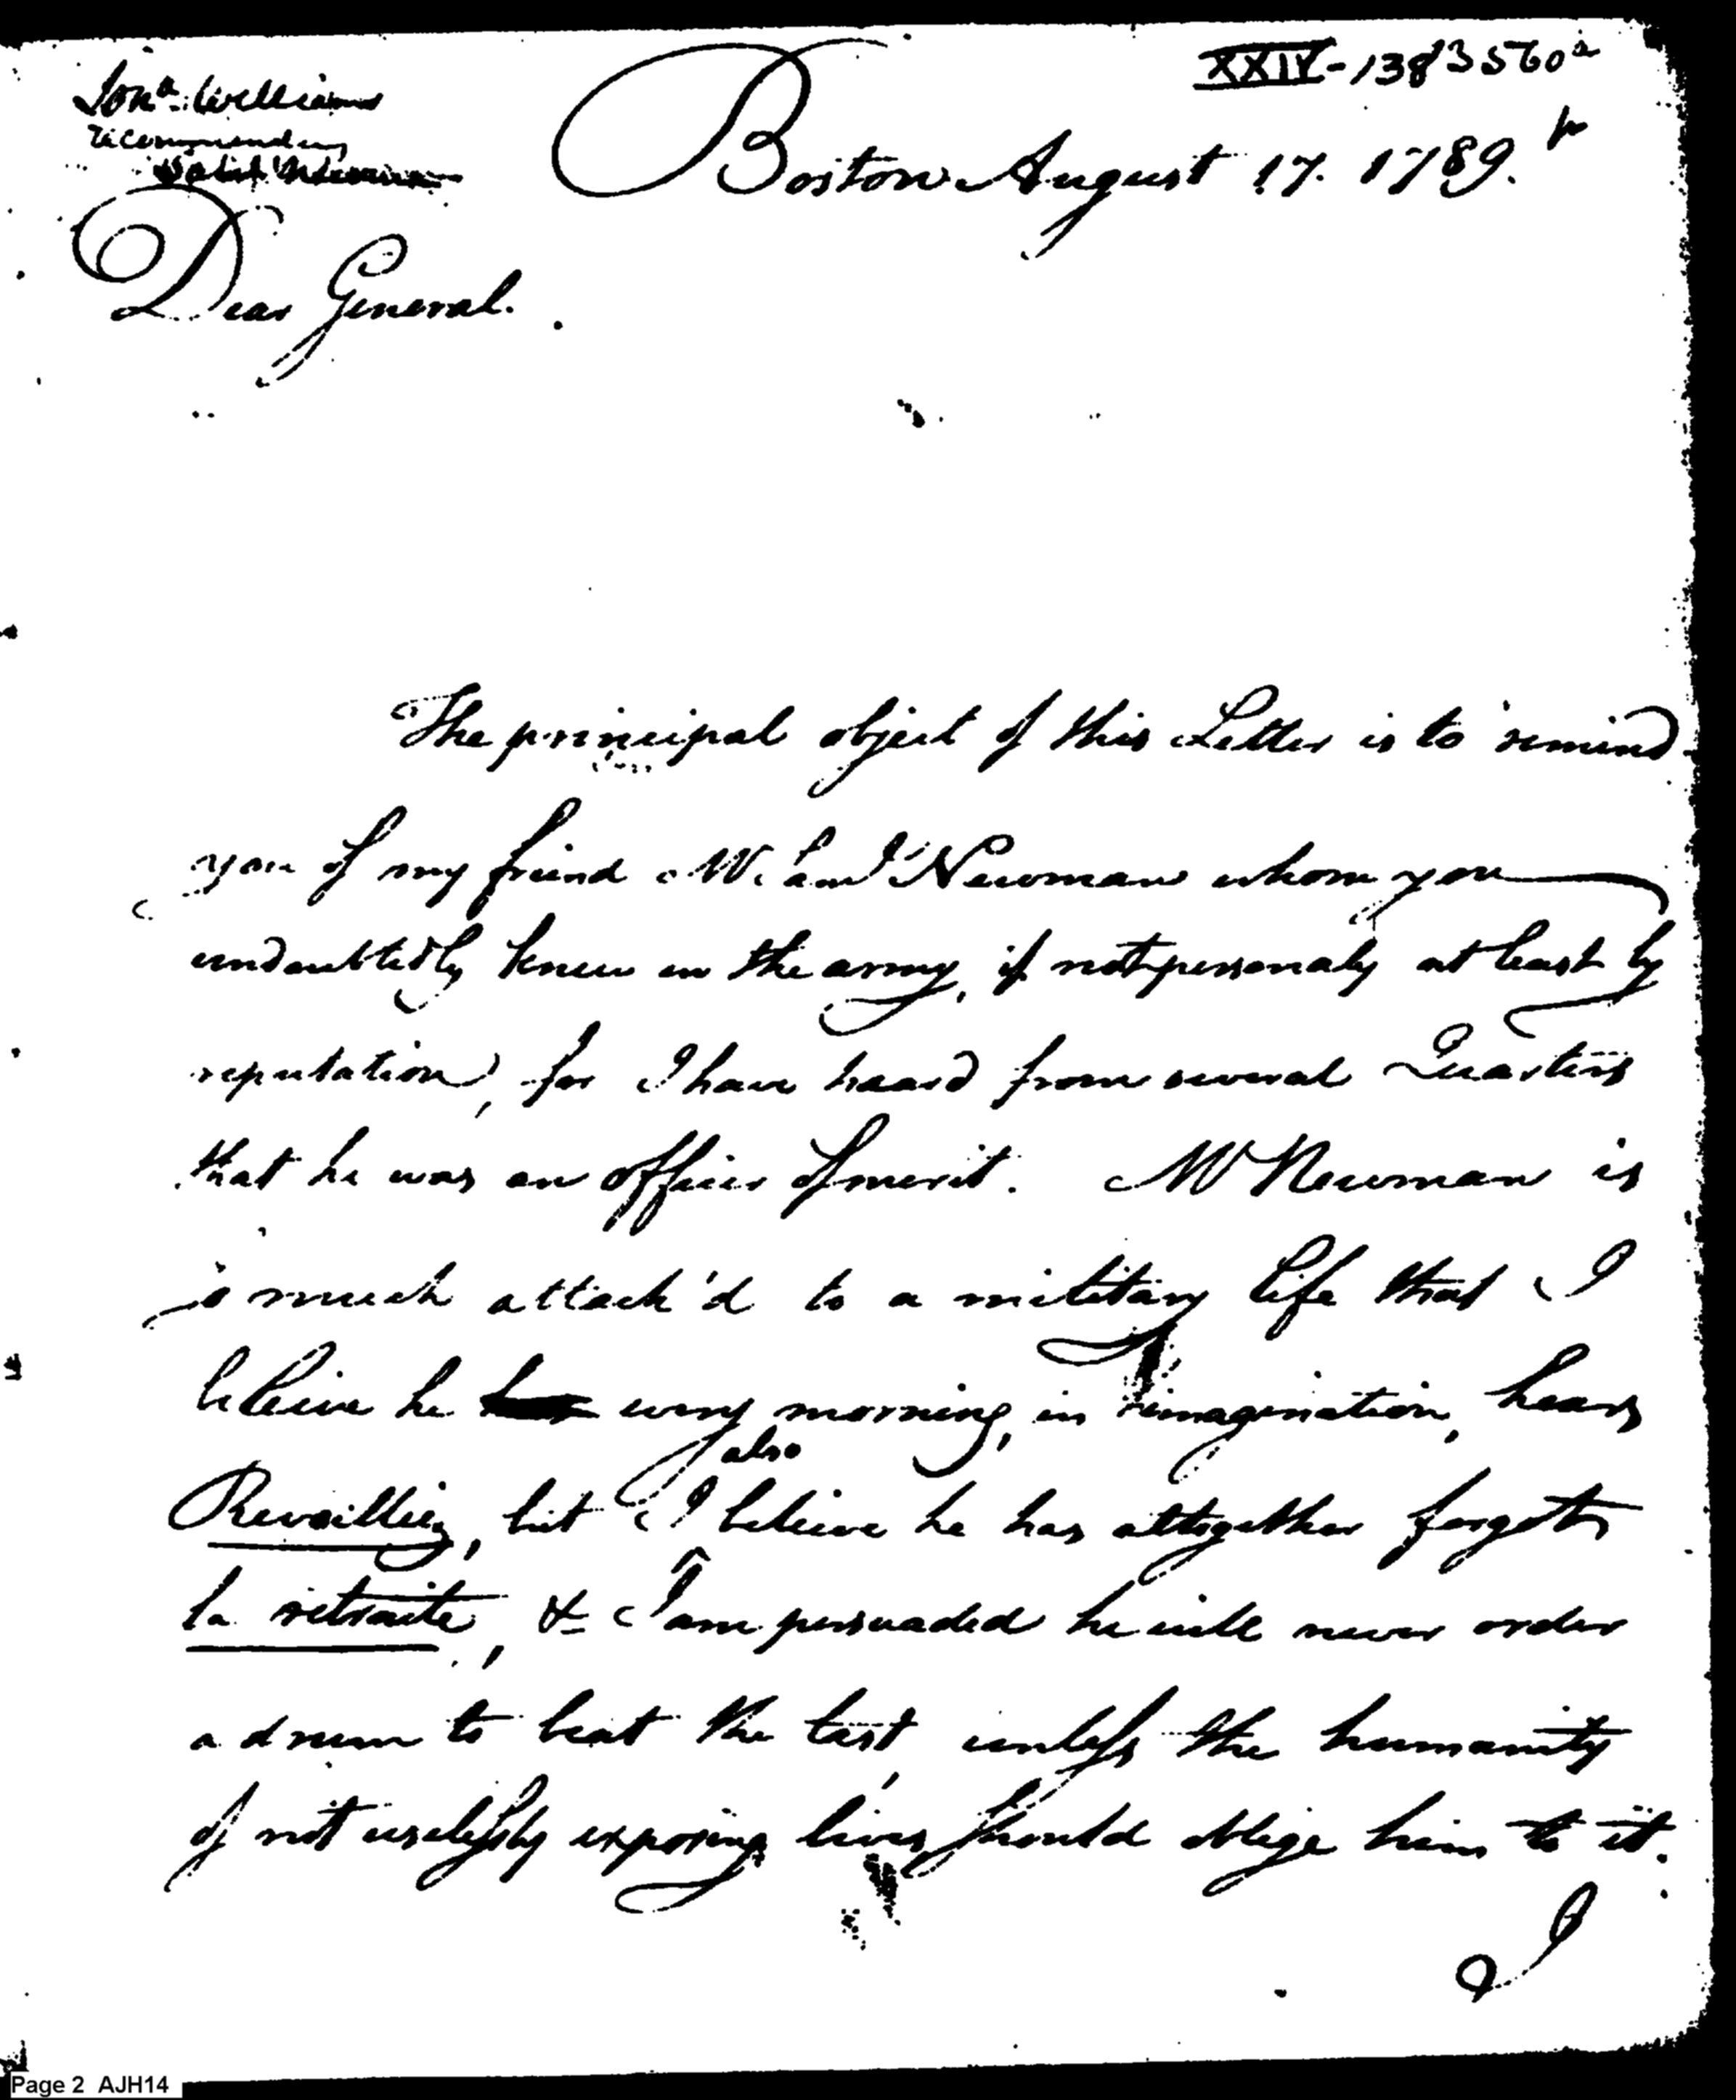 XXIV-138 3560a
Jona. Williams
recommending
Boston August 17. 1789.
Dear General.
The principal object of this Letter is to remind
you of my friend Mr Newman whom you
undoubtedly knew in the army, if not personaly at least by
reputation, for I have heard from several Quarters
that he was an officer of merit. Mr Newman is
so much attach'd to a military life that I
beleive he every morning, in imagination, hears
also
Revaillie, but I beleive he has altogether forgot
la retraite, & I am persuaded he will never order
a drum to beat the last, unless the humanity
of not uselessly exposing lives should oblige him to it.
I
Page 2 AJH14